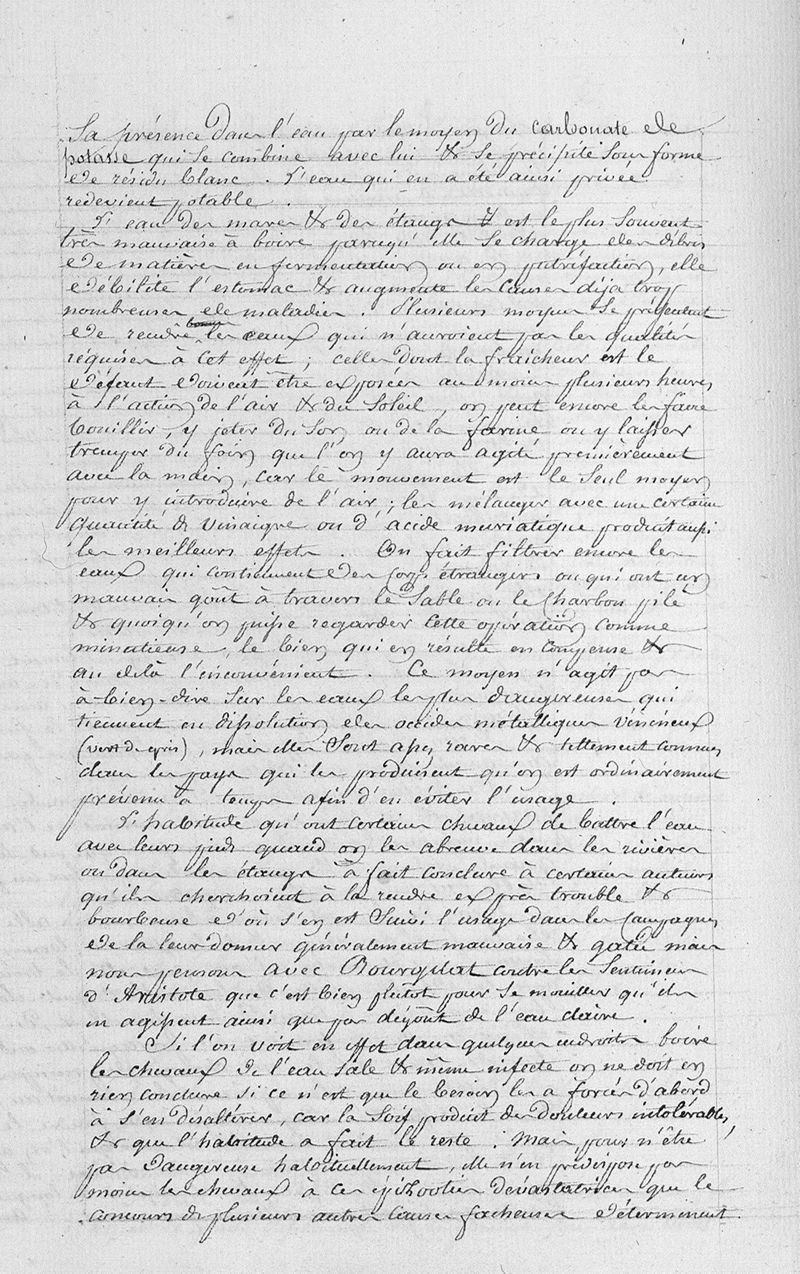 Sa présence dans l'eau par le moyen du carbonate de
potasse qui se combine avec lui & se précipite sous forme
de résidu blanc. L'eau qui en a été ainsi privée
redevient potable.
L'eau des mares & des étangs est le plus souvent
très mauvaise à boire parcequ'elle se charge des débris
de matières en fermentation ou en putréfaction, elle
débilite l'estomac & augmente les causes déja trop
nombreuses de maladies. Plusieurs moyens se présentent
de rendre bonnes les eaux qui n'auroient pas les qualités
réquises à cet effet ; celles dont la fraicheur est le
défaut doivent être exposées au moins plusieurs heures
à l'action de l'air & du Soleil, on peut encore les faire
bouillir, y jeter du Son ou de la farine ou y laisser
tremper du foin que l'on y aura agité premièrement
avec la main, car le mouvement est le seul moyen
pour y introduire de l'air ; les mélanger avec une certaine
quantité de vinaigre ou d'acide muriatique produit aussi
les meilleurs effets. On fait filtrer encore les
eaux qui contiennent des corps étrangers ou qui ont un
mauvais goût à travers le Sable ou le Charbon pilé
& quoiqu'on puisse regarder cette opération comme
minutieuse, le bien qui en résulte en compense &
au delà l'inconvénient. Ce moyen n'agit pas
à-bien-dire sur les eaux les plus dangereuses qui
tiennent en dissolution des oxides métalliques vénéneux
(vert de gris), mais elles sont assez rares & tellement connues
dans les pays qui les produisent qu'on est ordinairement
prévenu à temps afin d'en éviter l'usage.
L'habitude qu'ont certains chevaux de battre l'eau
avec leurs pieds quand on les abreuve dans les rivières
ou dans les étangs à fait conclure à certains auteurs
qu'ils cherchoient à la rendre exprès trouble &
bourbeuse d'où s'en est suivi l'usage dans les Campagnes
de la leur donner généralement mauvaise & gatée mais
nous pensons avec Bourgelat contre les Sentimens
d'Aristote que c'est bien plutôt pour se mouiller qu'ils
en agissent ainsi que par dégoût de l'eau claire.
Si l'on voit en effet dans quelques endroits boire
les chevaux de l'eau sale & même infecte on ne doit en
rien conclure si ce n'est que le besoin les a forcés d'abord
à s'en désaltérer, car la soif produit des douleurs intolérables,
& que l'habitude a fait le reste. Mais pour n'être
pas dangereuse habituellement, elle n'en prédispose pas
moins les chevaux à ces épizooties dévastatrices que le
concours de plusieurs autres causes facheuses déterminent.